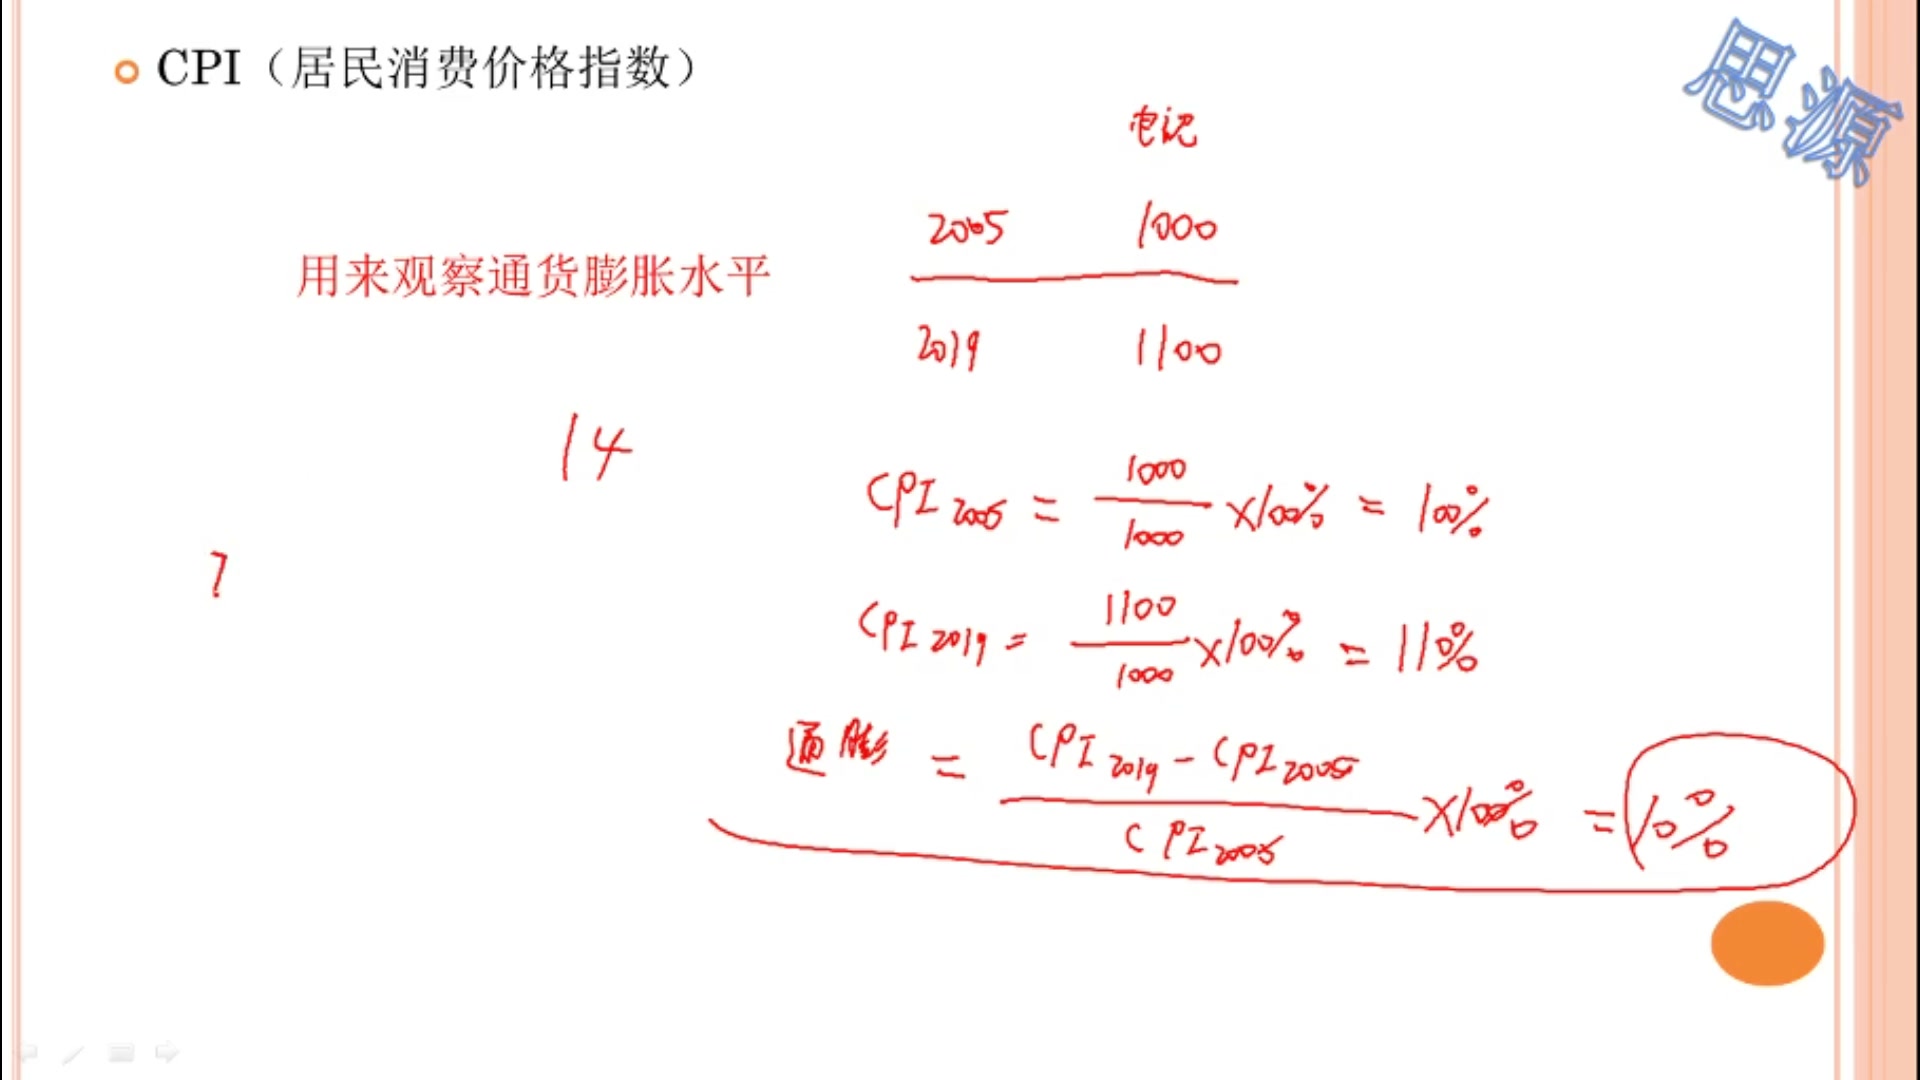 CPI（居民消费价格指数）
思源
电视
2005 1000
用来观察通货膨胀水平
2019 1100
14
CPI 2005 = 1000/1000 ×100% = 100%
7
CPI 2019 = 1100/1000 ×100% = 110%
通膨 = (CPI 2019 - CPI 2005)/CPI 2005 ×100% = 10%